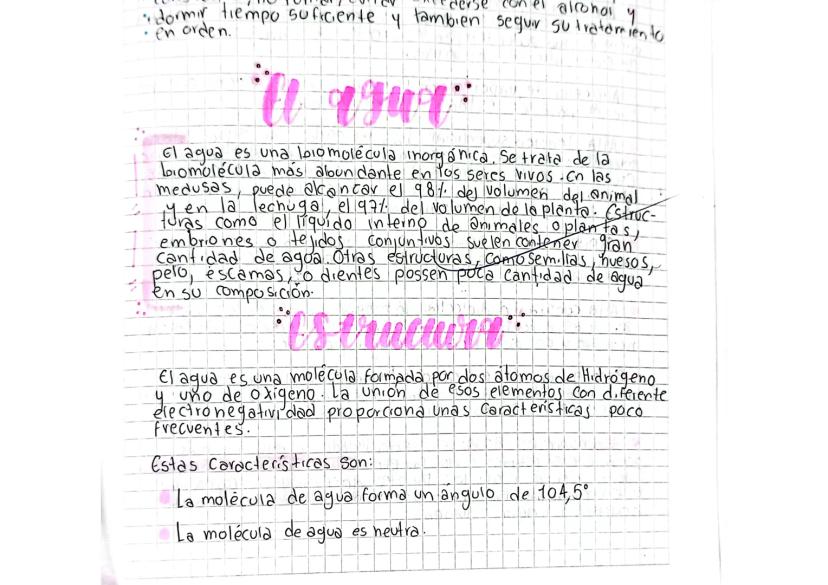 con el alcohol y
• dormir tiempo suficiente y tambien seguir su tratamiento
• en orden.
El agua
El agua es una biomolécula inorgánica. Se trata de la
biomolécula más abundante en los seres vivos. En las
medusas, puede alcanzar el 98% del volumen del animal
y en la lechuga, el 97% del volumen de la planta. Estruc-
turas como el líquido interno de animales o plantas,
embriones o tejidos conjuntivos suelen contener gran
cantidad de agua. Otras estructuras, como semillas, huesos,
pelo, escamas, o dientes possen poca cantidad de agua
en su composición.
Estructura
El agua es una molécula formada por dos átomos de Hidrógeno
y uno de oxígeno. La unión de esos elementos con diferente
electronegatividad proporciona unas características poco
frecuentes.
Estas Características son:
La molécula de agua forma un ángulo de 104,5°
La molécula de agua es neutra.